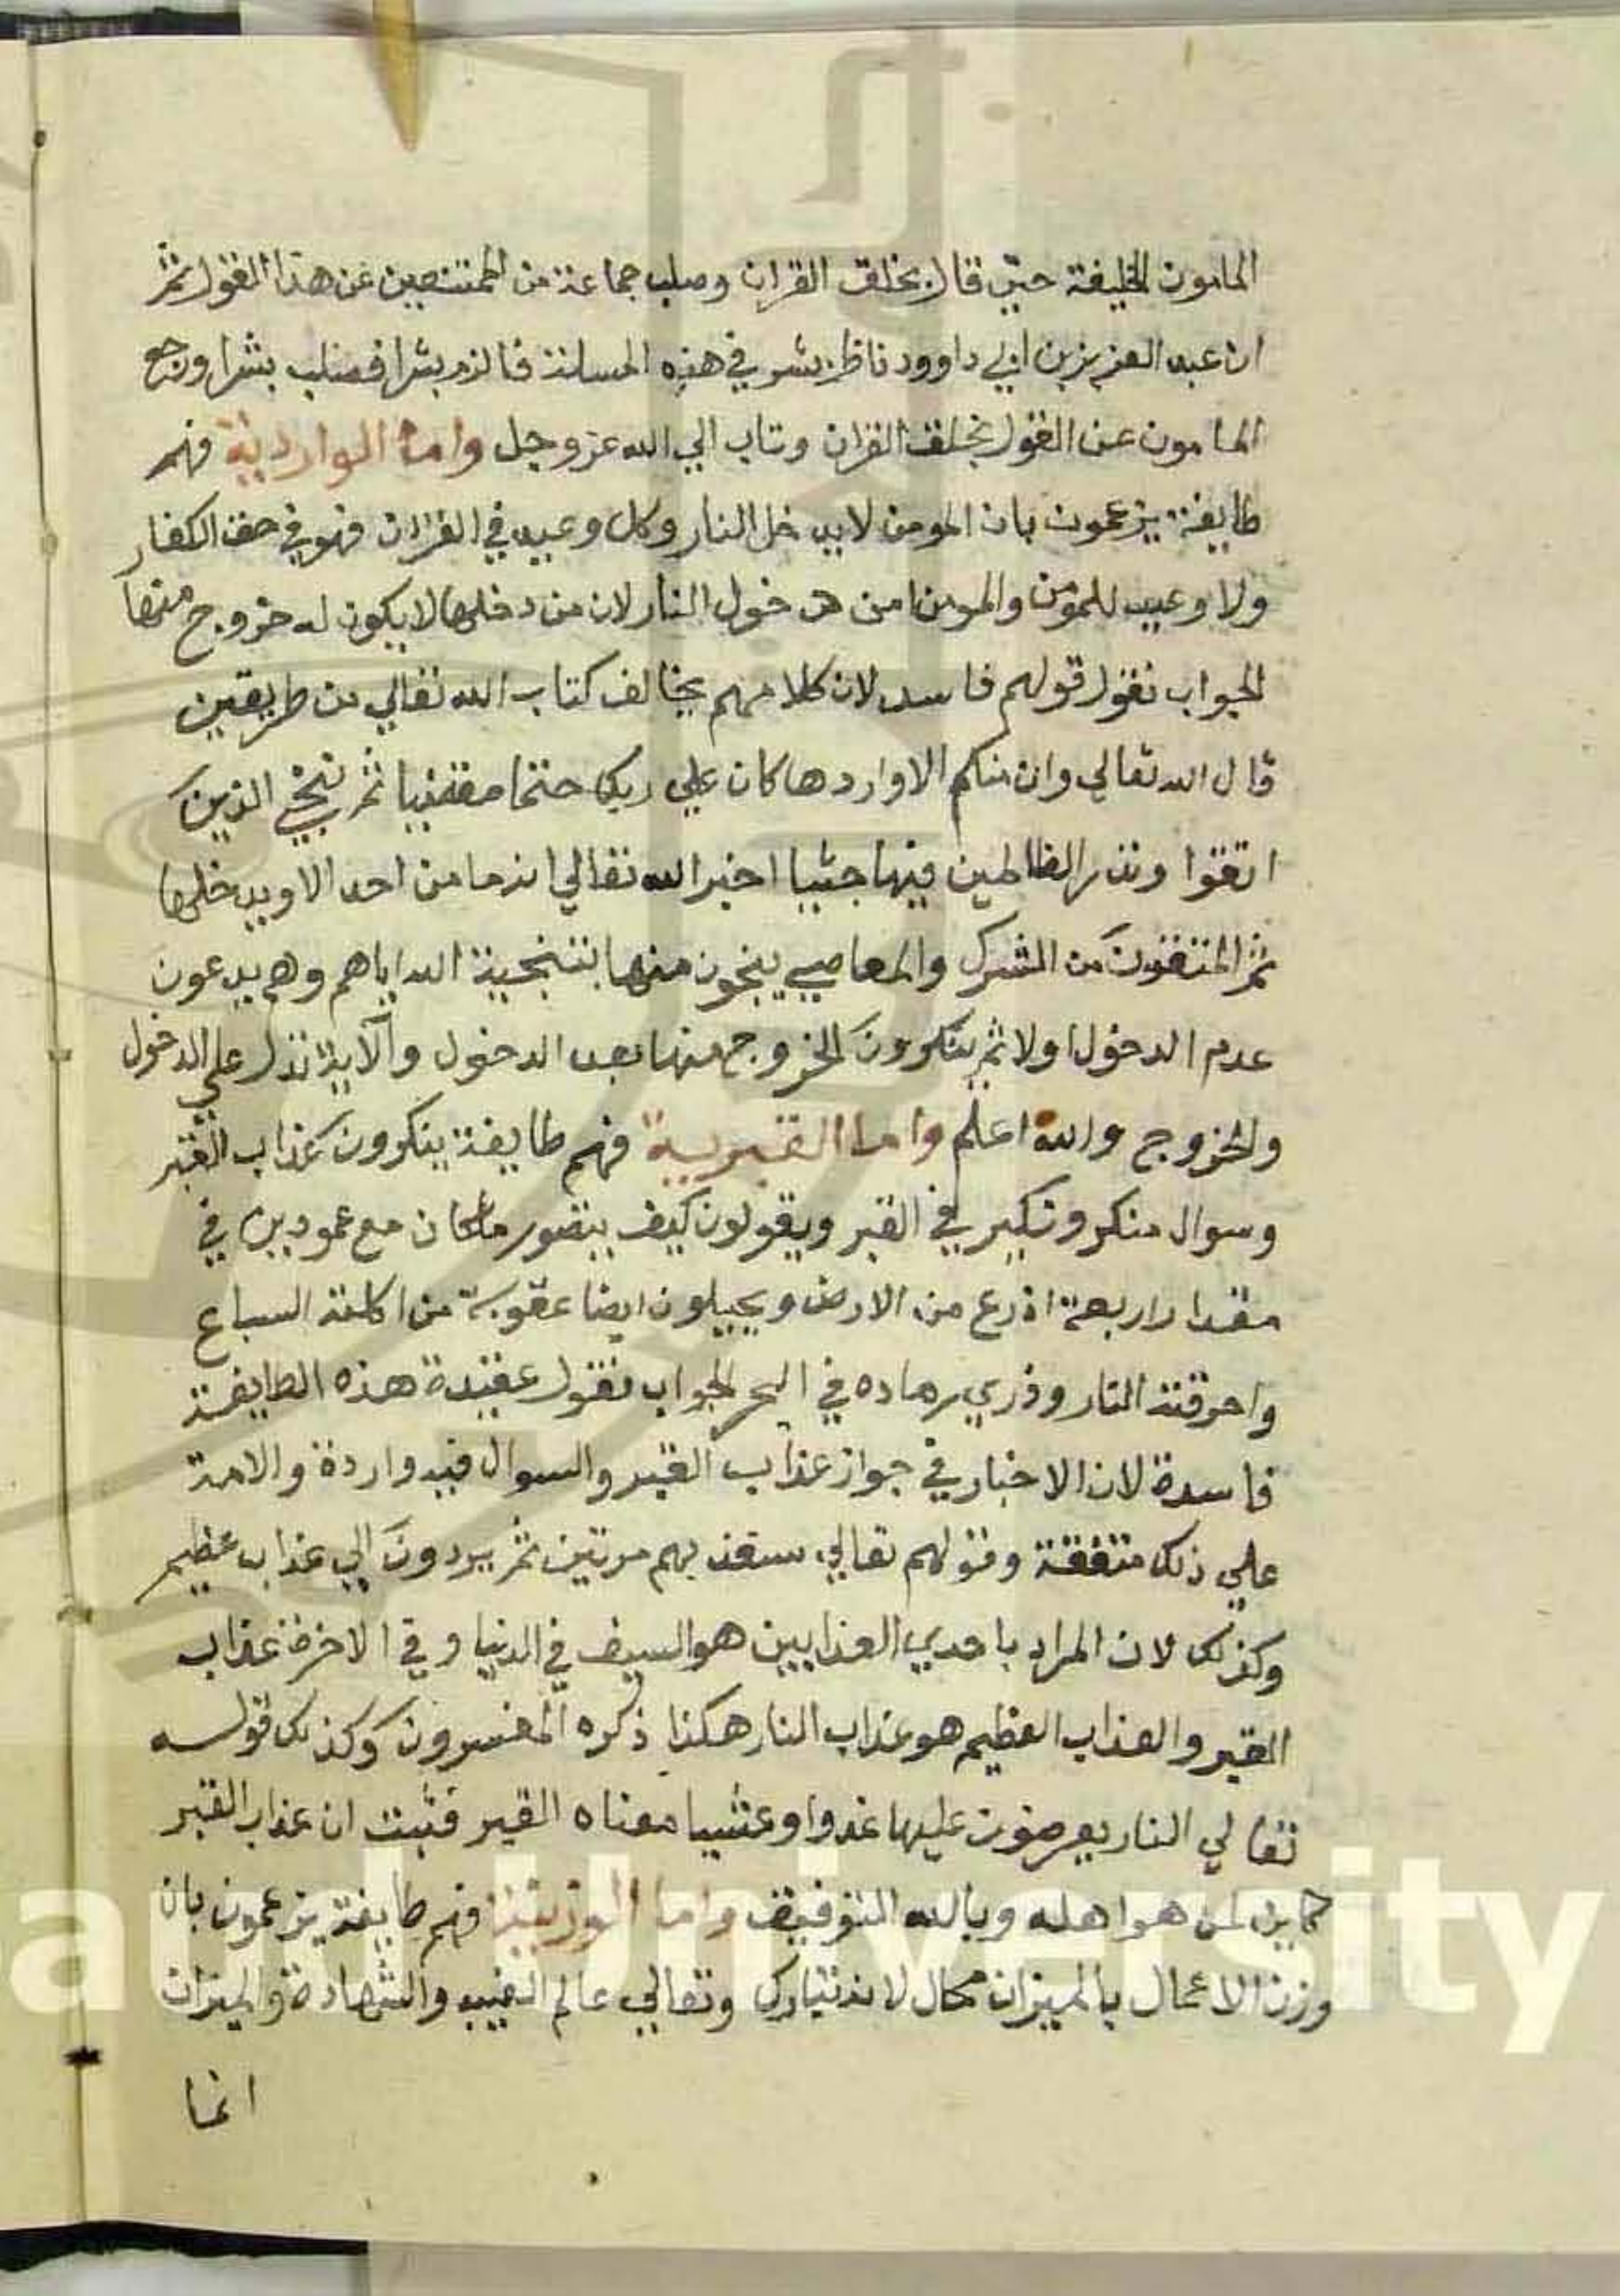 المامون الخليفة حتى قال بخلق القران وصلب جماعة من الممتنعين عن هذا القول ثم
ان عبد العزيز بن ابي داوود ناظر بشر في هذه المسالة فالزم بشرا فصلب بشرا ورجع
المامون عن القول بخلق القران وتاب الي الله عز وجل واما الواردية فهم
طايفة يزعمون بان المومن لا يدخل النار وكل وعيد في القران فهو في حق الكفار
ولا وعيد للمومن والمومن امن من دخول النار لان من دخلها لا يكون له خروج منها
الجواب نقول قولهم فاسد لان كلامهم يخالف كتاب الله تعالي من طريقين
قال الله تعالي وان منكم الا واردها كان علي ربك حتما مقضيا ثم ننجي الذين
اتقوا ونذر الظالمين فيها جثيا اخبر الله تعالي انه ما من احد الا ويدخلها
ثم المتقون من الشرك والمعاصي ينجون منها بتنجية الله اياهم وهم يدعون
عدم الدخول اولا ثم ينكرون الخروج منها بعد الدخول والآية تدل علي الدخول
والخروج والله اعلم واما القبرية فهم طايفة ينكرون عذاب القبر
وسوال منكر ونكير في القبر ويقولون كيف يتصور ملكان مع عمودين في
مقدار اربعة اذرع من الارض ويحيلون ايضا عقوبة من اكلته السباع
واحرقته النار وذري رماده في البحر الجواب نقول عقيدة هذه الطايفة
فاسدة لان الاخبار في جواز عذاب القبر والسوال فيه واردة والامة
علي ذلك متفقة وقولهم تعالي سنعذبهم مرتين ثم يردون الي عذاب عظيم
وكذلك لان المراد باحدي العذابين هو السيف في الدنيا وفي الاخرة عذاب
القبر والعذاب العظيم هو عذاب النار هكذا ذكره المفسرون وكذلك قوله
تعالي النار يعرضون عليها غدوا وعشيا معناه القبر فثبت ان عذاب القبر
جايز لمن هو اهله وبالله التوفيق واما الوزنية فهم طايفة يزعمون بان
وزن الاعمال بالميزان محال لانه تبارك وتعالي عالم الغيب والشهادة والميزان
انما
aud University